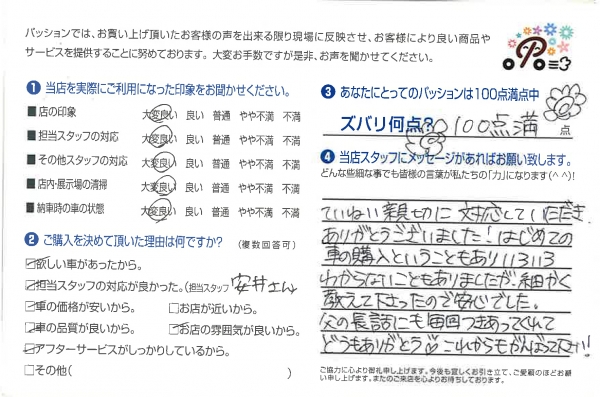 パッションでは、お買い上げ頂いたお客様の声を出来る限り現場に反映させ、お客様により良い商品や
サービスを提供することに努めております。大変お手数ですが是非、お声を聞かせてください。
❶ 当店を実際にご利用になった印象をお聞かせください。
■店の印象 大変良い 良い 普通 やや不満 不満
■担当スタッフの対応 大変良い 良い 普通 やや不満 不満
■その他スタッフの対応 大変良い 良い 普通 やや不満 不満
■店内・展示場の清掃 大変良い 良い 普通 やや不満 不満
■納車時の車の状態 大変良い 良い 普通 やや不満 不満
❷ ご購入を決めて頂いた理由は何ですか？（複数回答可）
☑欲しい車があったから。
☑担当スタッフの対応が良かった。(担当スタッフ 安井さん
☑車の価格が安いから。 □お店が近いから。
☑車の品質が良いから。 ☑お店の雰囲気が良いから。
☑アフターサービスがしっかりしているから。
□その他( )
❸ あなたにとってのパッションは100点満点中
ズバリ何点？ 100点満 点
❹ 当店スタッフにメッセージがあればお願い致します。
どんな些細な事でも皆様の言葉が私たちの「力」になります(^ ^)!
ていねい親切に対応していただき
ありがとうございました！はじめての
車の購入ということもありいろいろ
わからないこともありましたが、細かく
教えて下さったので安心でした。
父の長話にも毎回つきあってくれて
どうもありがとう♡これからもがんばって下さい！
ご協力に心より御礼申し上げます。今後も宜しくお引き立て、ご愛顧のほどお願
い申し上げます。またのご来店を心よりお待ちしております。